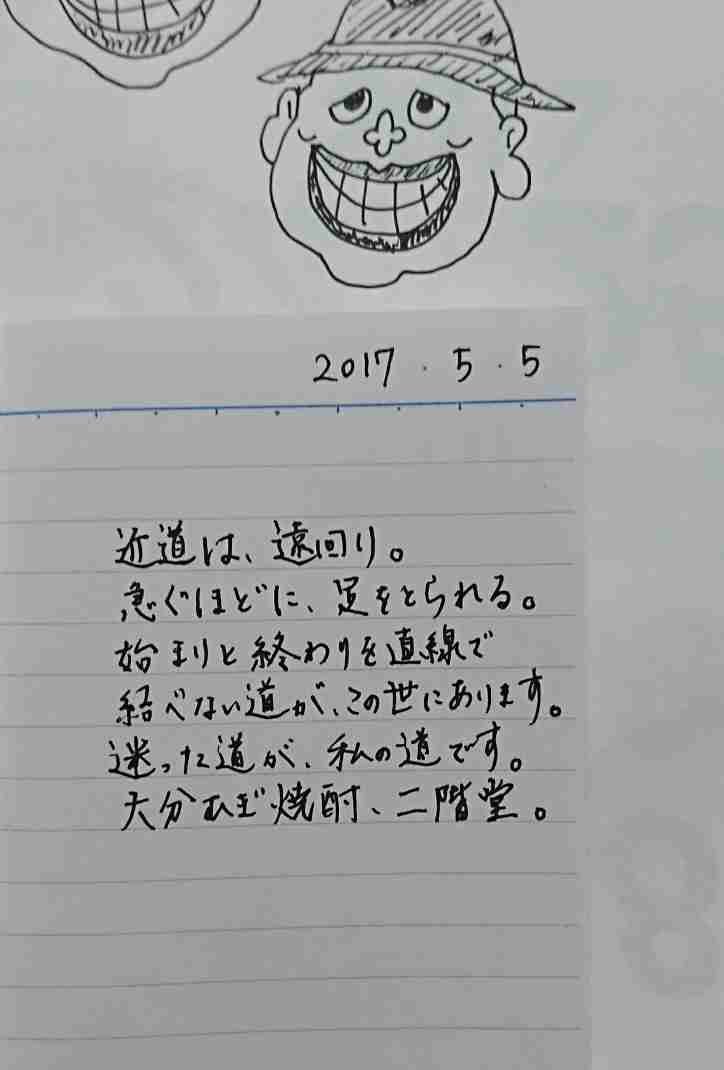 2017.5.5
近道は、遠回り。
急ぐほどに、足をとられる。
始まりと終わりを直線で
結べない道が、この世にあります。
迷った道が、私の道です。
大分むぎ焼酎、二階堂。